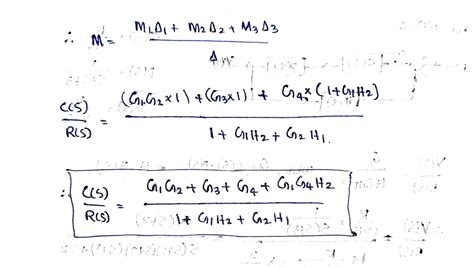 ∴ M = M1Δ1 + M2Δ2 + M3Δ3 / Δ
C(S)/R(S) = (G1G2×1) + (G3×1) + G4×(1+G1H2) / 1 + G1H2 + G2H1
∴ C(S)/R(S) = G1G2 + G3 + G4 + G1G4H2 / 1 + G1H2 + G2H1